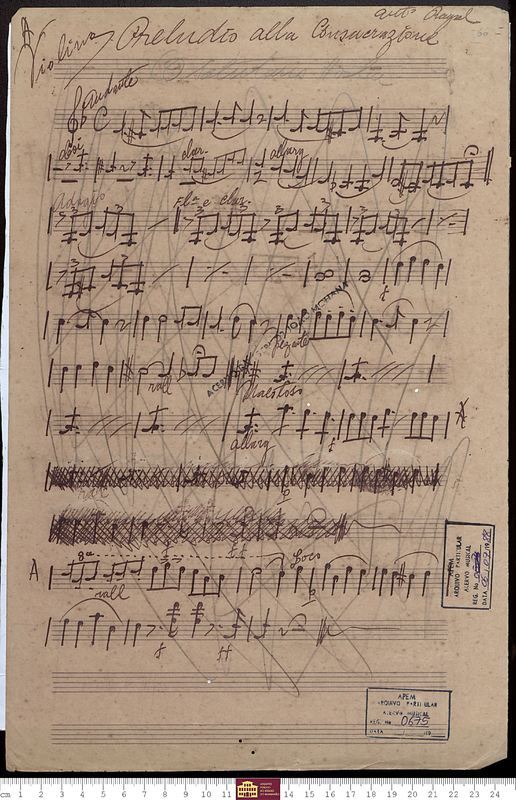 Violino
Preludio alla Consacrazione
Andante
C
clar.
allarg
Adagio
Fl. e clar.
3 3 3 3 3 3
f
Pezante
rall
Maestoso
allarg
f
A
rall
p
8a
Loco
A
rall
p
f
ff
APEM
ARQUIVO PARTICULAR
ACERVO MUSICAL
REG. No
DATA
APEM
ARQUIVO PARTICULAR
ACERVO MUSICAL
REG. No 0675
DATA
cm 1 2 3 4 5 6 7 8 9 10 11 14 15 16 17 18 19 20 21 22 23 24